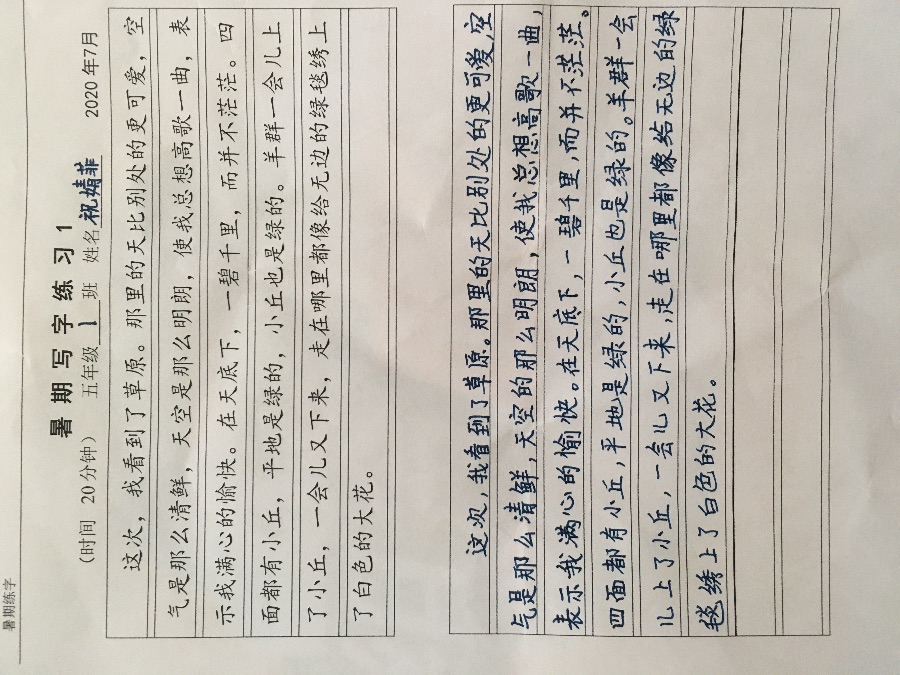 暑期练字
暑期写字练习1
(时间 20分钟) 五年级 1 班 姓名 祝婧菲 2020年7月
这次，我看到了草原。那里的天比别处的更可爱，空
气是那么清鲜，天空是那么明朗，使我总想高歌一曲，表
示我满心的愉快。在天底下，一碧千里，而并不茫茫。四
面都有小丘，平地是绿的，小丘也是绿的。羊群一会儿上
了小丘，一会儿又下来，走在哪里都像给无边的绿毯绣上
了白色的大花。
这次，我看到了草原。那里的天比别处的更可爱，空
气是那么清鲜，天空的那么明朗，使我总想高歌一曲，
表示我满心的愉快。在天底下，一碧千里，而并不茫茫。
四面都有小丘，平地是绿的，小丘也是绿的。羊群一会
儿上了小丘，一会儿又下来，走在哪里都像给无边的绿
毯绣上了白色的大花。